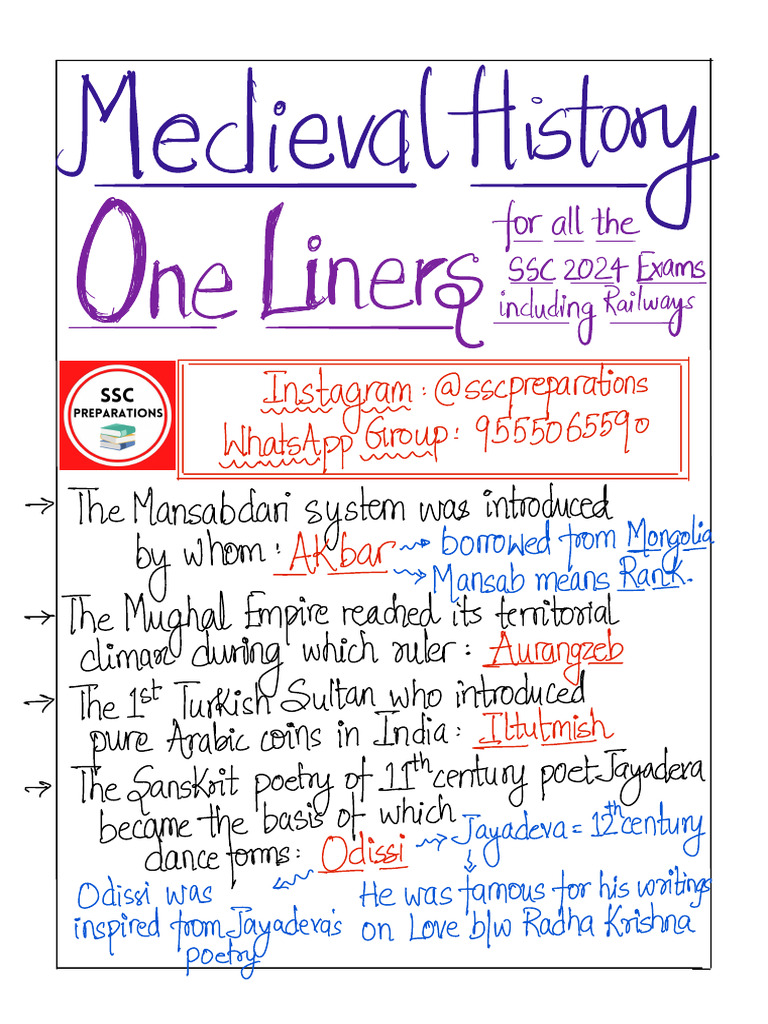 Medieval History
One Liners
for all the
SSC 2024 Exams
including Railways
SSC
PREPARATIONS
Instagram : @sscpreparations
WhatsApp Group : 9555065590
→ The Mansabdari system was introduced
by whom : Akbar → borrowed from Mongolia
→ Mansab means Rank.
→ The Mughal Empire reached its territorial
climax during which ruler : Aurangzeb
→ The 1st Turkish Sultan who introduced
pure Arabic coins in India : Iltutmish
→ The Sanskrit poetry of 11th century poet Jayadeva
became the basis of which
dance forms : Odissi → Jayadeva = 12th century
Odissi was
inspired from Jayadeva's
poetry
He was famous for his writings
on Love b/w Radha Krishna